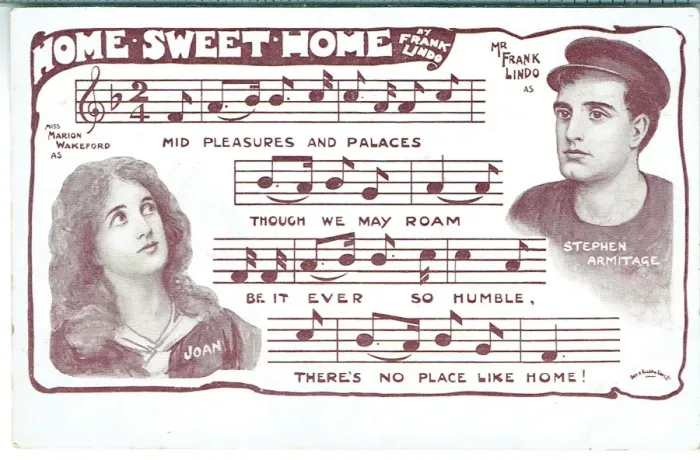 HOME · SWEET · HOME
BY
FRANK
LINDO
MR
FRANK
LINDO
AS
MISS
MARION
WAKEFORD
AS
2
4
MID PLEASURES AND PALACES
THOUGH WE MAY ROAM
STEPHEN
ARMITAGE
BE IT EVER SO HUMBLE,
JOAN
THERE'S NO PLACE LIKE HOME!